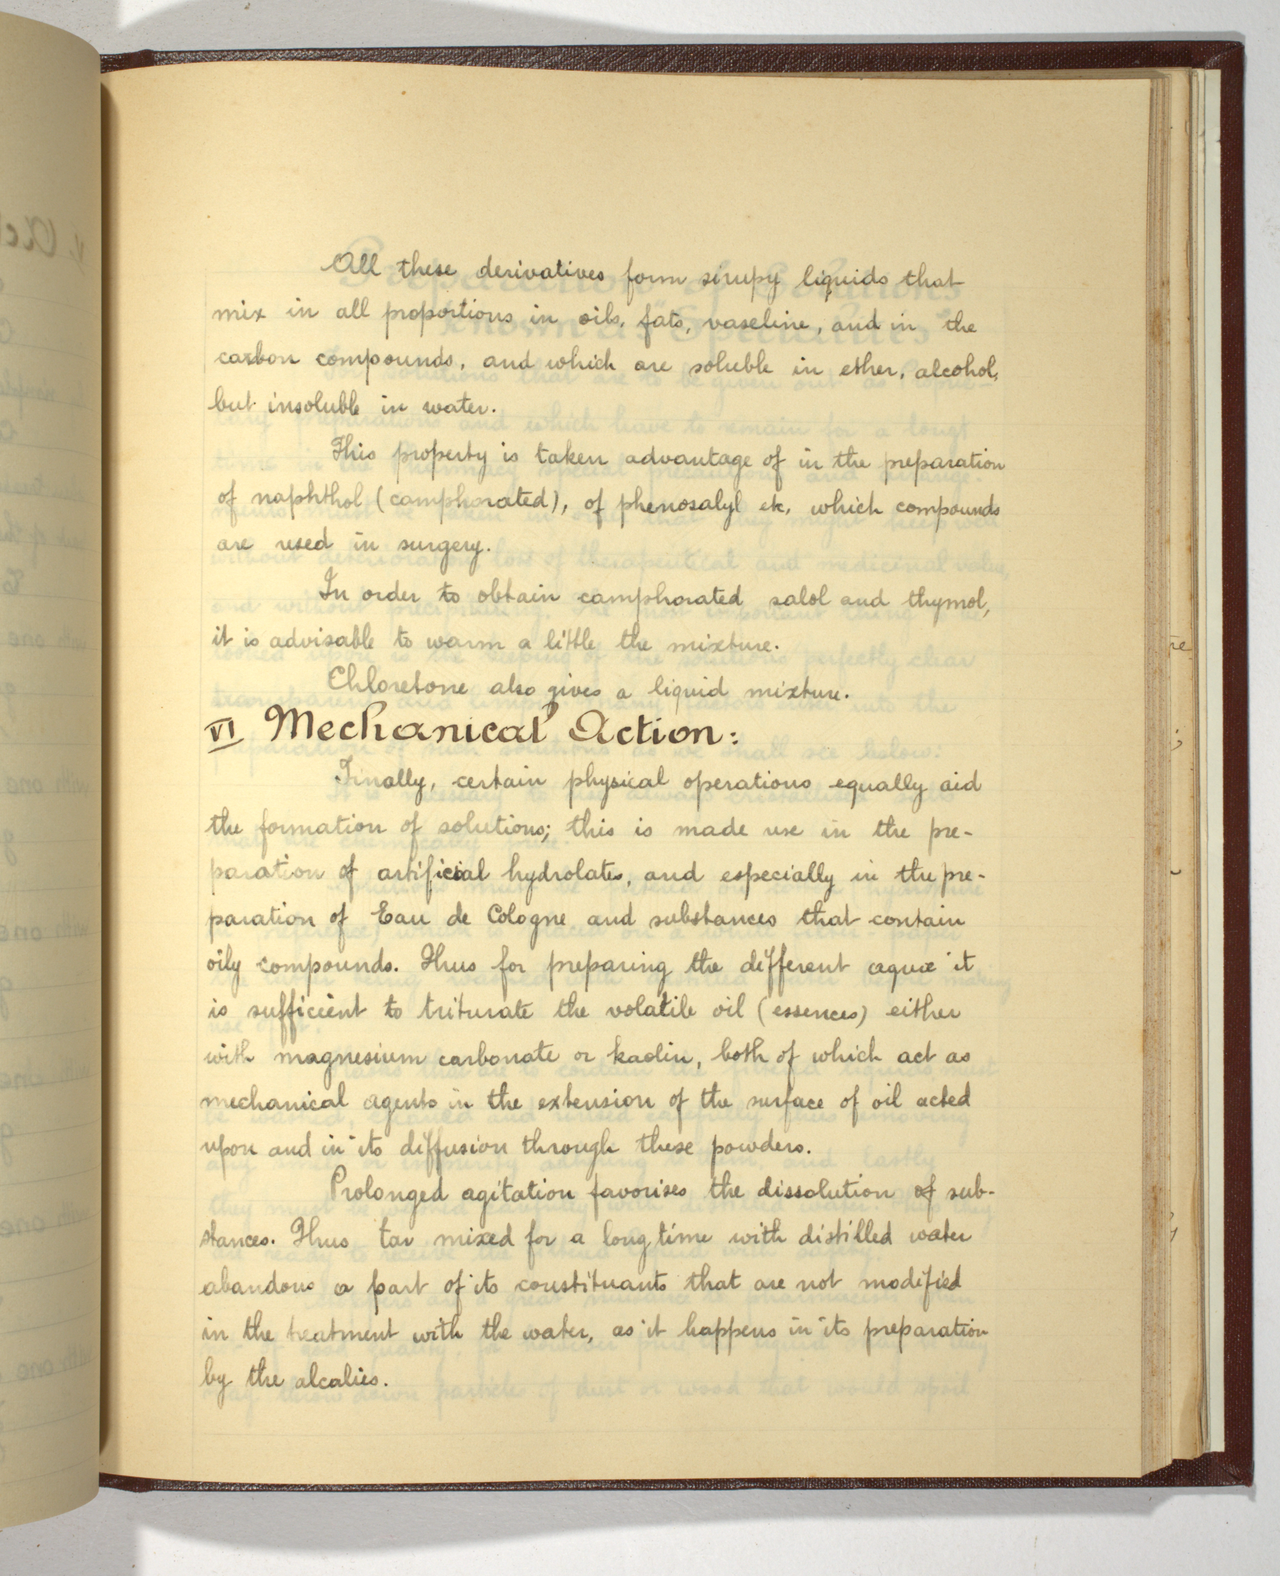 All these derivatives form sirupy liquids that
mix in all proportions in oils, fats, vaseline, and in the
carbon compounds, and which are soluble in ether, alcohol,
but insoluble in water.
This property is taken advantage of in the preparation
of naphthol (camphorated), of phenosalyl etc, which compounds
are used in surgery.
In order to obtain camphorated salol and thymol,
it is advisable to warm a little the mixture.
Chloretone also gives a liquid mixture.
VI Mechanical Action:
Finally, certain physical operations equally aid
the formation of solutions; this is made use in the pre-
paration of artificial hydrolates, and especially in the pre-
paration of Eau de Cologne and substances that contain
oily compounds. Thus for preparing the different aquæ it
is sufficient to triturate the volatile oil (essences) either
with magnesium carbonate or kaolin, both of which act as
mechanical agents in the extension of the surface of oil acted
upon and in its diffusion through these powders.
Prolonged agitation favorises the dissolution of sub-
stances. Thus tar mixed for a long time with distilled water
abandons a part of its constituants that are not modified
in the treatment with the water, as it happens in its preparation
by the alcalies.